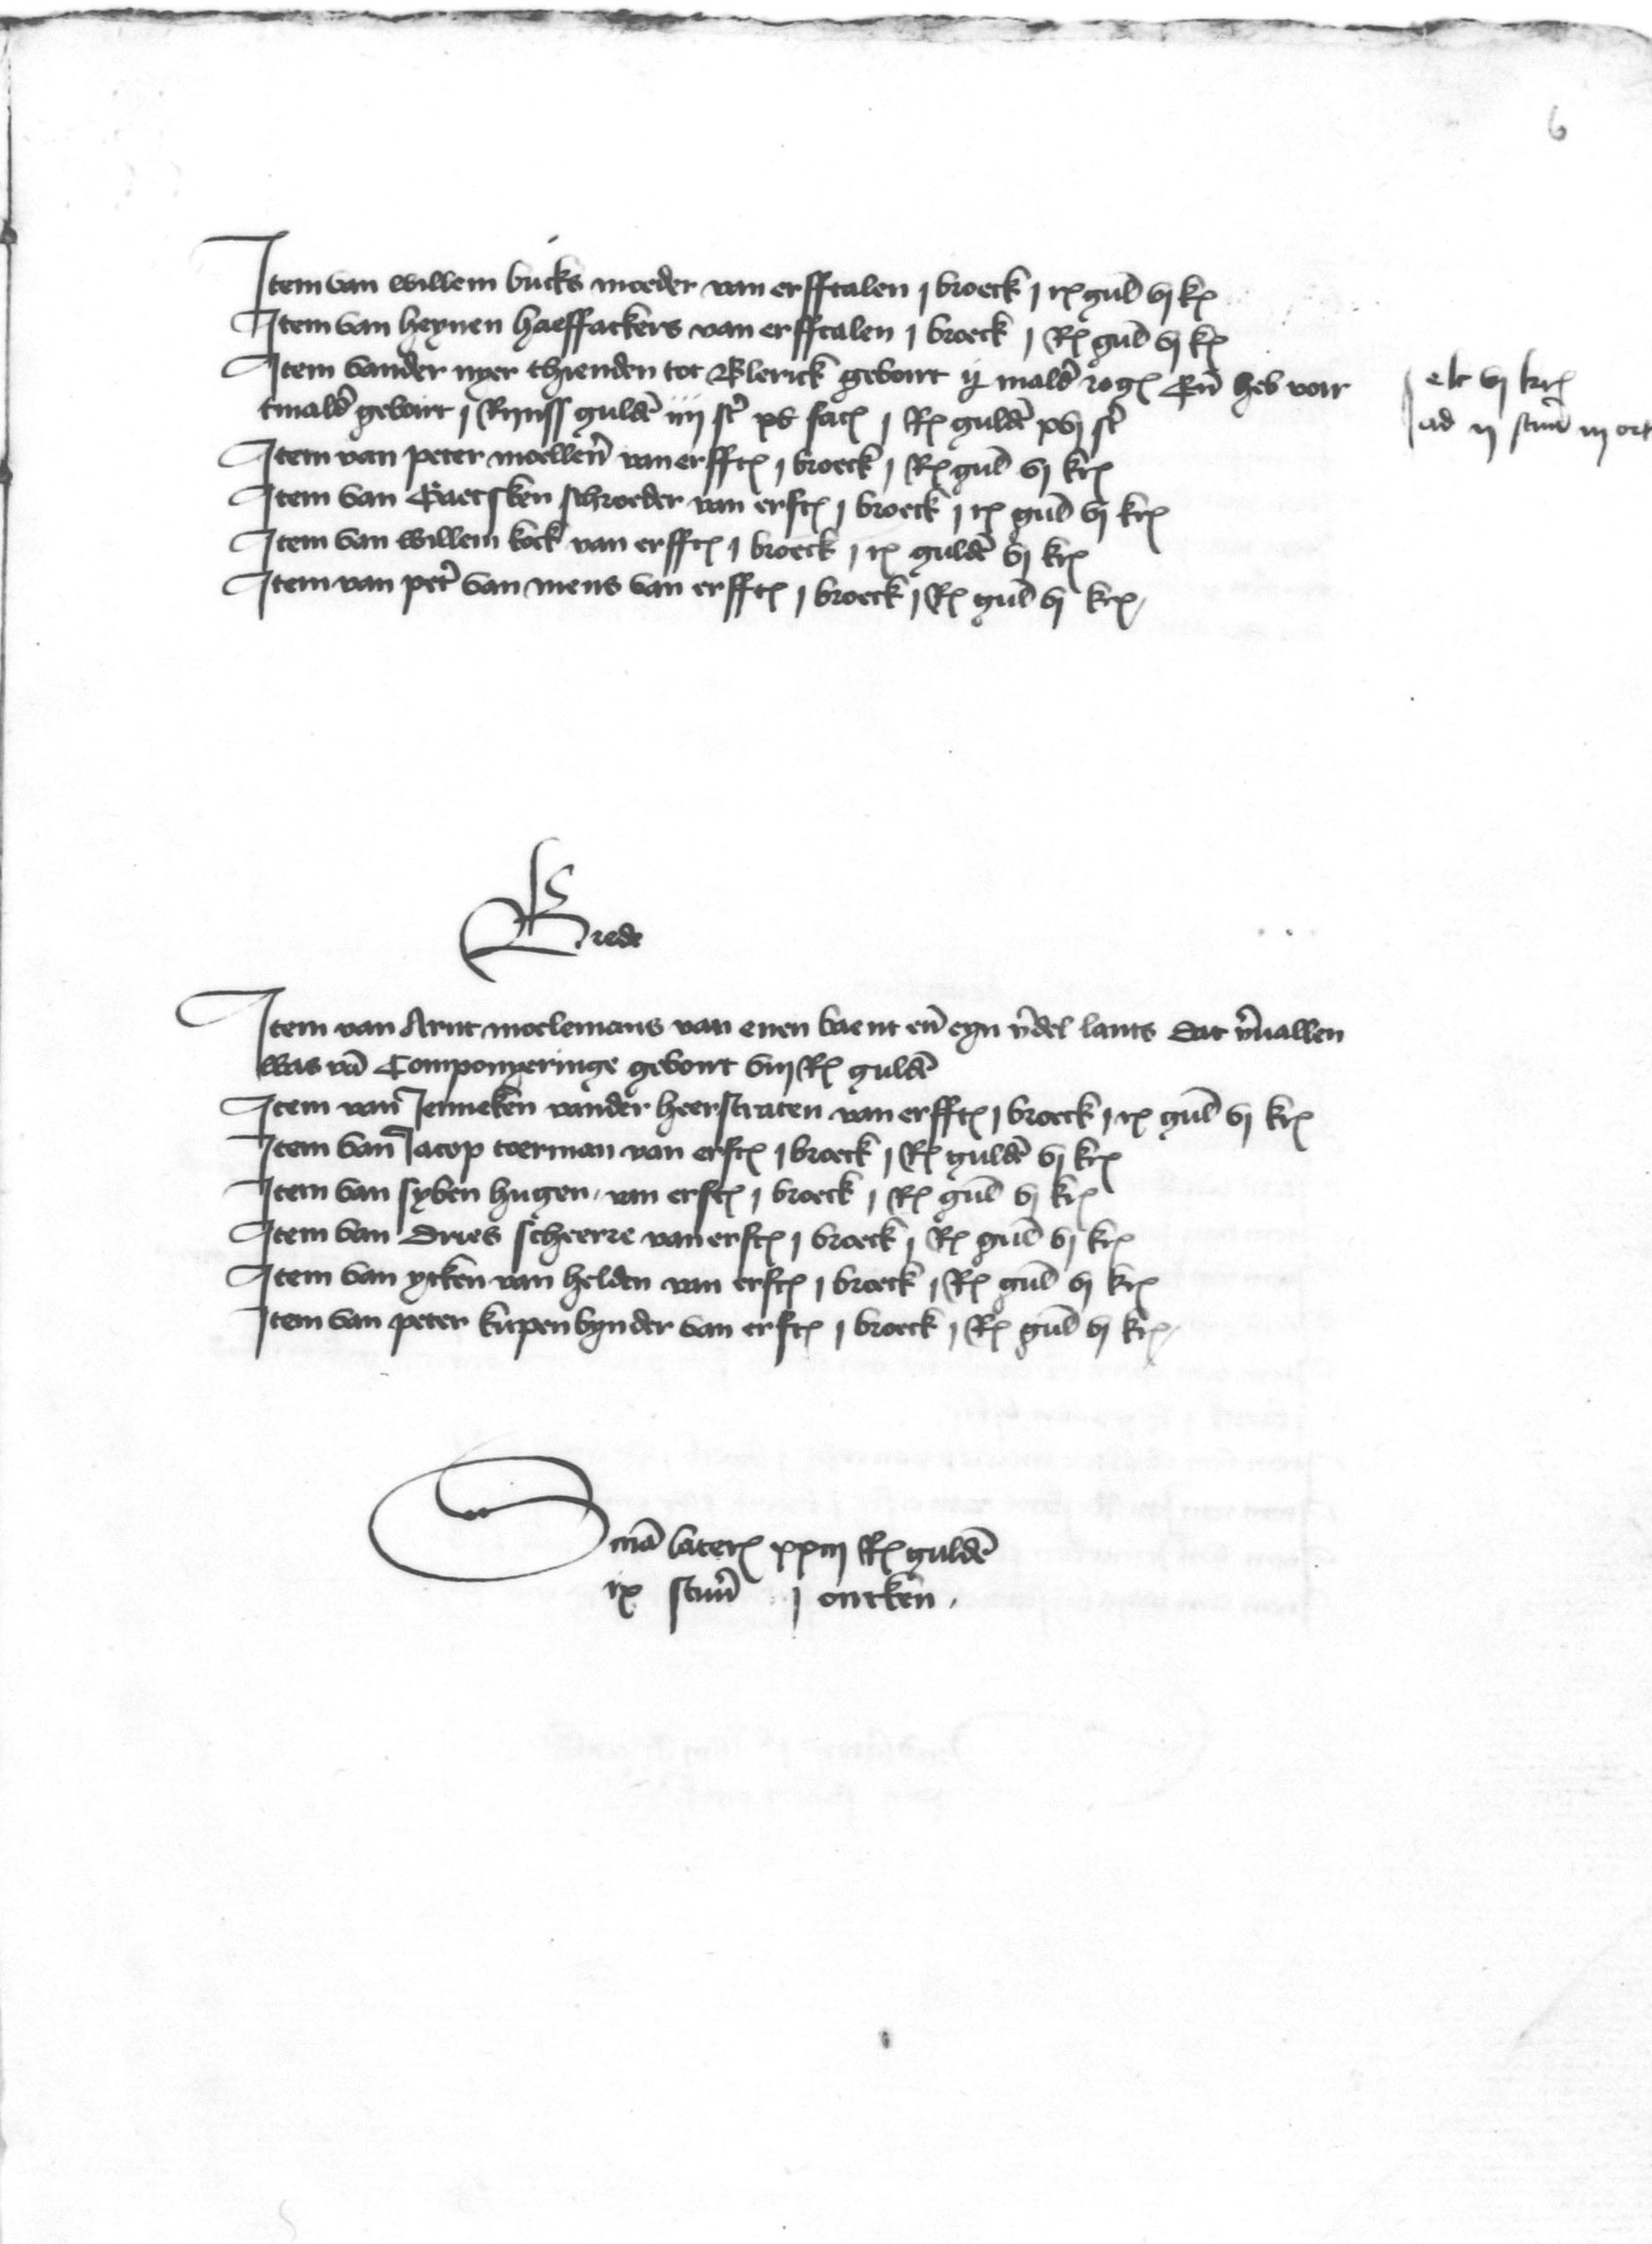 6
Item van willem bucks moeder van erfftalen j broeck j r gul vj k
Item van heynen haeffackers van erfftalen j broeck j R gul vj k
Item vander nyer thienden tot Blerick geboirt ij mald rog En heb voir
tmald geboirt j Rijnss gulde iiij st xv fac j R gulde xvj st
elc vj kr
ad ij stuu iij ort
Item van peter moellen van erfft j broeck j R gul vj kr
Item van schroeder van erft j broeck j r gul vj kr
Item van willem kock van erfft j broeck j r gulde vj kr
Item van pet van mens van erfft j broeck j R gul vj kr
Brede
Item van Arnt moelemans van enen baent en eyn v̄del lants dat v̄uallen
was vā Componyeringe geboirt viij R guldē
Item van Jenneken vander heerstraten van erfft j broeck j r gul vj kr
Item van Jacop toerman van erft j broeck j R gulde vj kr
Item van syben hugen van erft j broeck j R gul vj kr
Item van dries scheerre van erft j broeck j R gul vj kr
Item van ycken van helden van erft j broeck j R gul vj kr
Item van peter kupenbynder van erft j broeck j R gul vj kr
Sma later xxiij R guldē
ix stuu j ortken